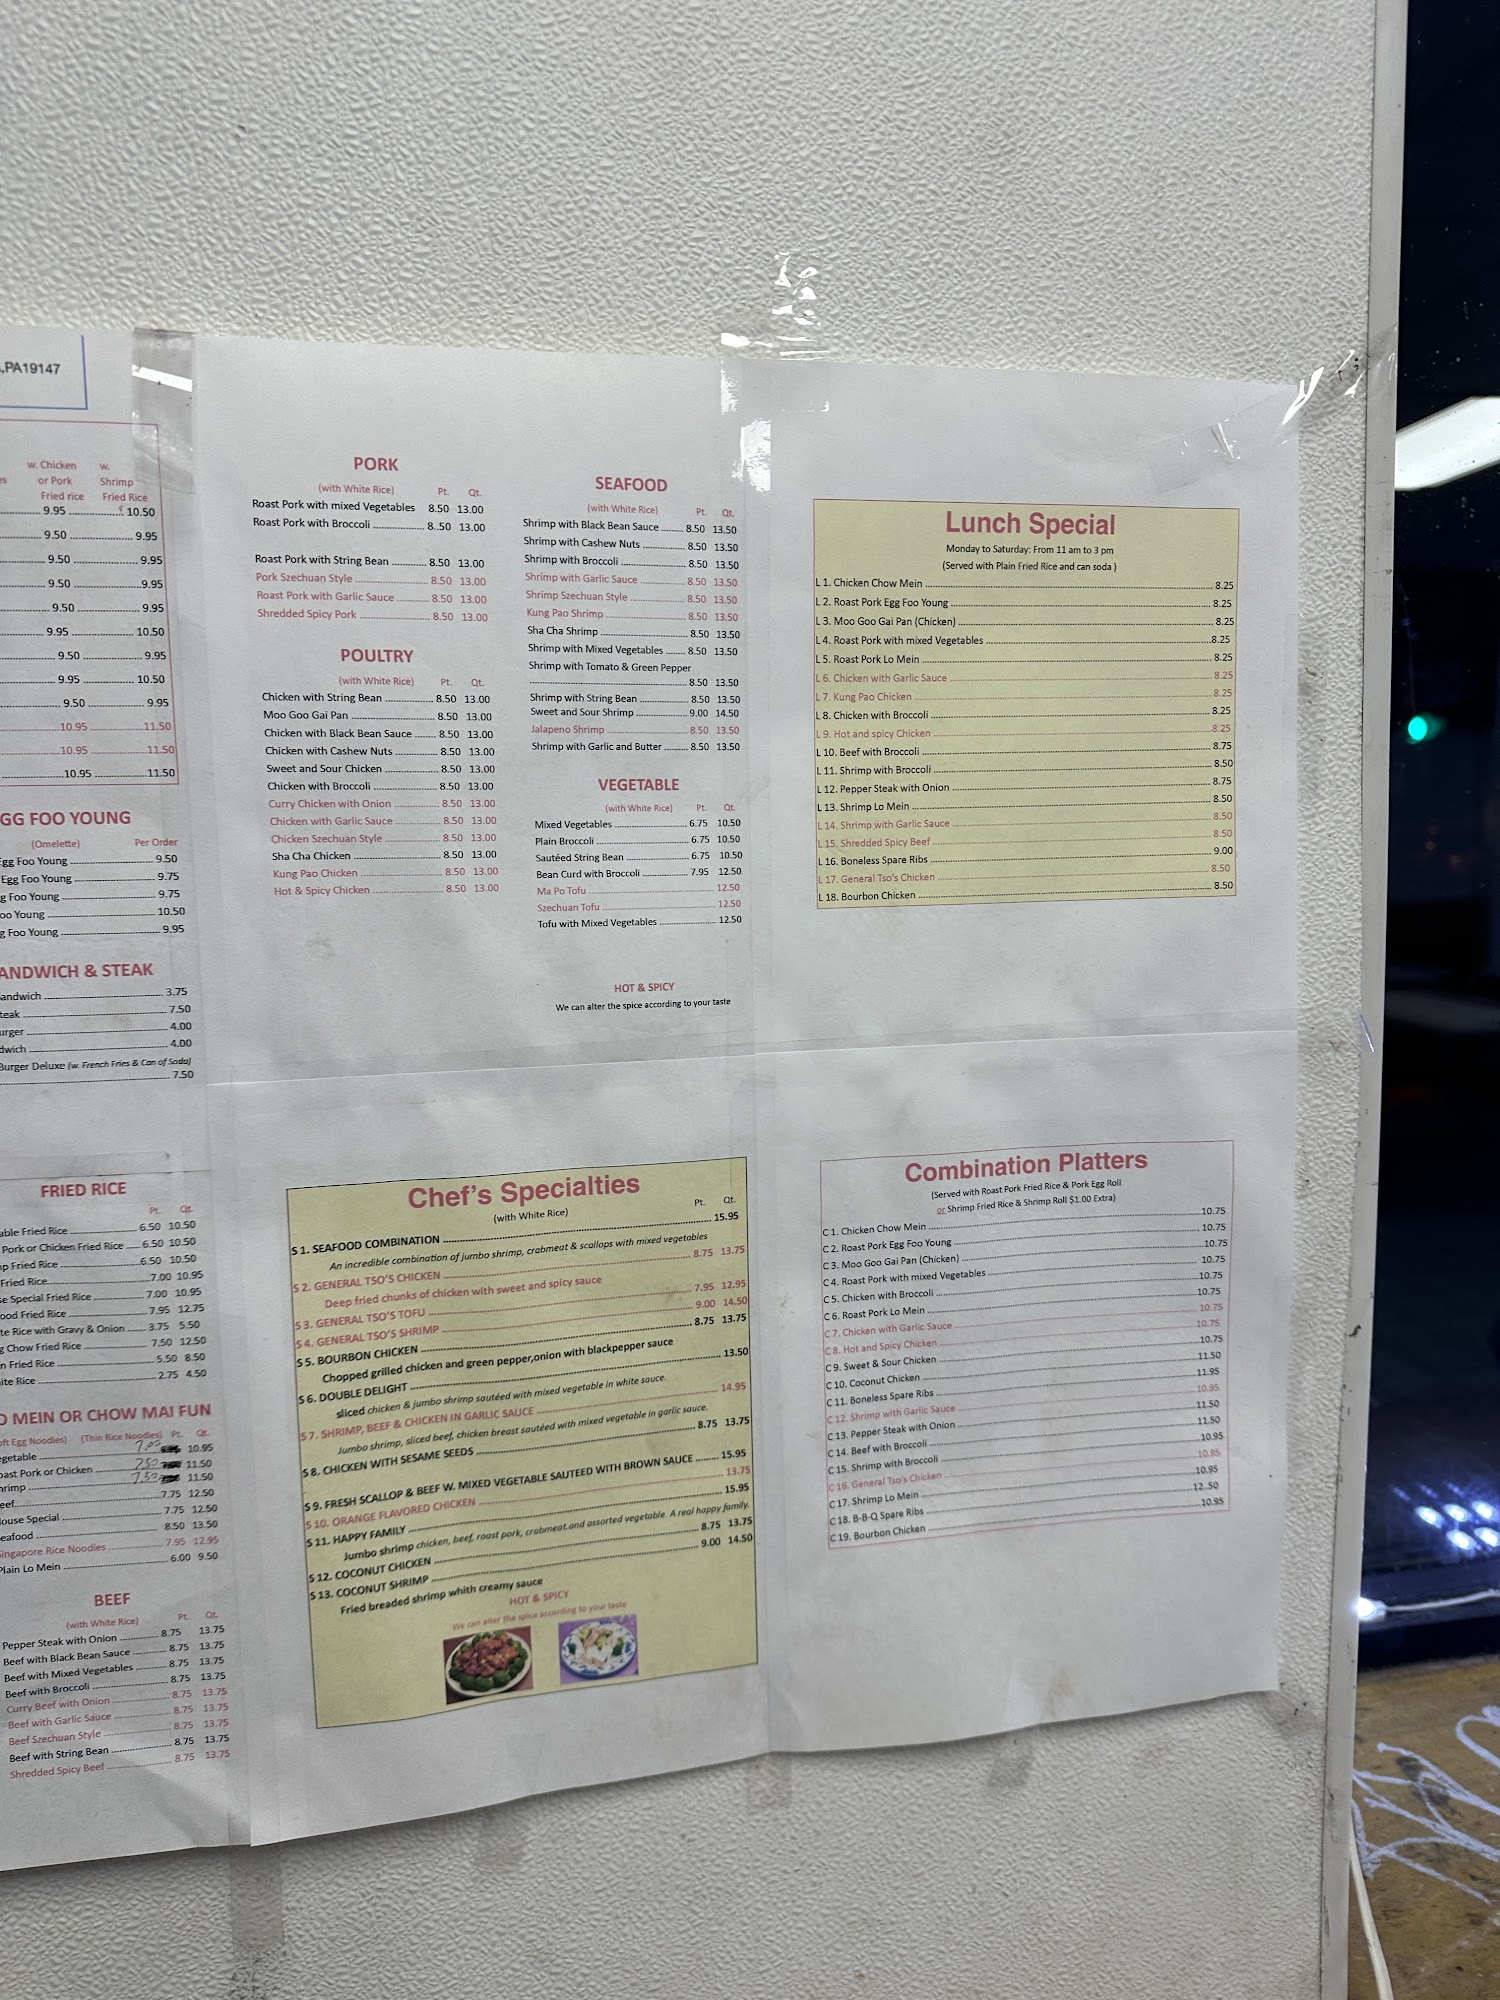 ,PA19147
w. Chicken w.
or Pork Shrimp
Fried rice Fried Rice
9.95 10.50
9.50 9.95
9.50 9.95
9.50 9.95
9.50 9.95
9.95 10.50
9.50 9.95
9.95 10.50
9.50 9.95
10.95 11.50
10.95 11.50
10.95 11.50
GG FOO YOUNG
(Omelette) Per Order
Egg Foo Young 9.50
Egg Foo Young 9.75
g Foo Young 9.75
oo Young 10.50
g Foo Young 9.95
ANDWICH & STEAK
andwich 3.75
teak 7.50
urger 4.00
dwich 4.00
Burger Deluxe (w. French Fries & Can of Soda)
7.50
FRIED RICE
Pt. Qt.
able Fried Rice 6.50 10.50
Pork or Chicken Fried Rice 6.50 10.50
p Fried Rice 6.50 10.50
Fried Rice 7.00 10.95
se Special Fried Rice 7.00 10.95
ood Fried Rice 7.95 12.75
te Rice with Gravy & Onion 3.75 5.50
g Chow Fried Rice 7.50 12.50
n Fried Rice 5.50 8.50
ite Rice 2.75 4.50
O MEIN OR CHOW MAI FUN
oft Egg Noodles) (Thin Rice Noodles) Pt. Qt.
egetable 7.00 10.95
oast Pork or Chicken 7.50 11.50
hrimp 7.50 11.50
eef 7.75 12.50
ouse Special 7.75 12.50
eafood 8.50 13.50
ingapore Rice Noodles 7.95 12.95
Plain Lo Mein 6.00 9.50
BEEF
(with White Rice) Pt. Qt.
Pepper Steak with Onion 8.75 13.75
Beef with Black Bean Sauce 8.75 13.75
Beef with Mixed Vegetables 8.75 13.75
Beef with Broccoli 8.75 13.75
Curry Beef with Onion 8.75 13.75
Beef with Garlic Sauce 8.75 13.75
Beef Szechuan Style 8.75 13.75
Beef with String Bean 8.75 13.75
Shredded Spicy Beef 8.75 13.75
PORK
(with White Rice) Pt. Qt.
Roast Pork with mixed Vegetables 8.50 13.00
Roast Pork with Broccoli 8..50 13.00
Roast Pork with String Bean 8.50 13.00
Pork Szechuan Style 8.50 13.00
Roast Pork with Garlic Sauce 8.50 13.00
Shredded Spicy Pork 8.50 13.00
POULTRY
(with White Rice) Pt. Qt.
Chicken with String Bean 8.50 13.00
Moo Goo Gai Pan 8.50 13.00
Chicken with Black Bean Sauce 8.50 13.00
Chicken with Cashew Nuts 8.50 13.00
Sweet and Sour Chicken 8.50 13.00
Chicken with Broccoli 8.50 13.00
Curry Chicken with Onion 8.50 13.00
Chicken with Garlic Sauce 8.50 13.00
Chicken Szechuan Style 8.50 13.00
Sha Cha Chicken 8.50 13.00
Kung Pao Chicken 8.50 13.00
Hot & Spicy Chicken 8.50 13.00
SEAFOOD
(with White Rice) Pt. Qt.
Shrimp with Black Bean Sauce 8.50 13.50
Shrimp with Cashew Nuts 8.50 13.50
Shrimp with Broccoli 8.50 13.50
Shrimp with Garlic Sauce 8.50 13.50
Shrimp Szechuan Style 8.50 13.50
Kung Pao Shrimp 8.50 13.50
Sha Cha Shrimp 8.50 13.50
Shrimp with Mixed Vegetables 8.50 13.50
Shrimp with Tomato & Green Pepper
8.50 13.50
Shrimp with String Bean 8.50 13.50
Sweet and Sour Shrimp 9.00 14.50
Jalapeno Shrimp 8.50 13.50
Shrimp with Garlic and Butter 8.50 13.50
VEGETABLE
(with White Rice) Pt. Qt.
Mixed Vegetables 6.75 10.50
Plain Broccoli 6.75 10.50
Sautéed String Bean 6.75 10.50
Bean Curd with Broccoli 7.95 12.50
Ma Po Tofu 12.50
Szechuan Tofu 12.50
Tofu with Mixed Vegetables 12.50
HOT & SPICY
We can alter the spice according to your taste
Lunch Special
Monday to Saturday: From 11 am to 3 pm
(Served with Plain Fried Rice and can soda )
L 1. Chicken Chow Mein 8.25
L 2. Roast Pork Egg Foo Young 8.25
L 3. Moo Goo Gai Pan (Chicken) 8.25
L 4. Roast Pork with mixed Vegetables 8.25
L 5. Roast Pork Lo Mein 8.25
L 6. Chicken with Garlic Sauce 8.25
L 7. Kung Pao Chicken 8.25
L 8. Chicken with Broccoli 8.25
L 9. Hot and spicy Chicken 8.25
L 10. Beef with Broccoli 8.75
L 11. Shrimp with Broccoli 8.50
L 12. Pepper Steak with Onion 8.75
L 13. Shrimp Lo Mein 8.50
L 14. Shrimp with Garlic Sauce 8.50
L 15. Shredded Spicy Beef 8.50
L 16. Boneless Spare Ribs 9.00
L 17. General Tso's Chicken 8.50
L 18. Bourbon Chicken 8.50
Chef's Specialties
(with White Rice) Pt. Qt.
S 1. SEAFOOD COMBINATION 15.95
An incredible combination of jumbo shrimp, crabmeat & scallops with mixed vegetables
S 2. GENERAL TSO'S CHICKEN 8.75 13.75
Deep fried chunks of chicken with sweet and spicy sauce
S 3. GENERAL TSO'S TOFU 7.95 12.95
S 4. GENERAL TSO'S SHRIMP 9.00 14.50
S 5. BOURBON CHICKEN 8.75 13.75
Chopped grilled chicken and green pepper,onion with blackpepper sauce
S 6. DOUBLE DELIGHT 13.50
sliced chicken & jumbo shrimp sautéed with mixed vegetable in white sauce.
S 7. SHRIMP, BEEF & CHICKEN IN GARLIC SAUCE 14.95
Jumbo shrimp, sliced beef, chicken breast sautéed with mixed vegetable in garlic sauce.
S 8. CHICKEN WITH SESAME SEEDS 8.75 13.75
S 9. FRESH SCALLOP & BEEF W. MIXED VEGETABLE SAUTEED WITH BROWN SAUCE 15.95
S 10. ORANGE FLAVORED CHICKEN 13.75
S 11. HAPPY FAMILY 15.95
Jumbo shrimp chicken, beef, roast pork, crabmeat and assorted vegetable. A real happy family.
S 12. COCONUT CHICKEN 8.75 13.75
S 13. COCONUT SHRIMP 9.00 14.50
Fried breaded shrimp whith creamy sauce
HOT & SPICY
We can alter the spice according to your taste
Combination Platters
(Served with Roast Pork Fried Rice & Pork Egg Roll
or Shrimp Fried Rice & Shrimp Roll $1.00 Extra)
C 1. Chicken Chow Mein 10.75
C 2. Roast Pork Egg Foo Young 10.75
C 3. Moo Goo Gai Pan (Chicken) 10.75
C 4. Roast Pork with mixed Vegetables 10.75
C 5. Chicken with Broccoli 10.75
C 6. Roast Pork Lo Mein 10.75
C 7. Chicken with Garlic Sauce 10.75
C 8. Hot and Spicy Chicken 10.75
C 9. Sweet & Sour Chicken 10.75
C 10. Coconut Chicken 11.50
C 11. Boneless Spare Ribs 11.95
C 12. Shrimp with Garlic Sauce 10.95
C 13. Pepper Steak with Onion 11.50
C 14. Beef with Broccoli 11.50
C 15. Shrimp with Broccoli 10.95
C 16. General Tso's Chicken 10.95
C 17. Shrimp Lo Mein 10.95
C 18. B-B-Q Spare Ribs 12..50
C 19. Bourbon Chicken 10.95